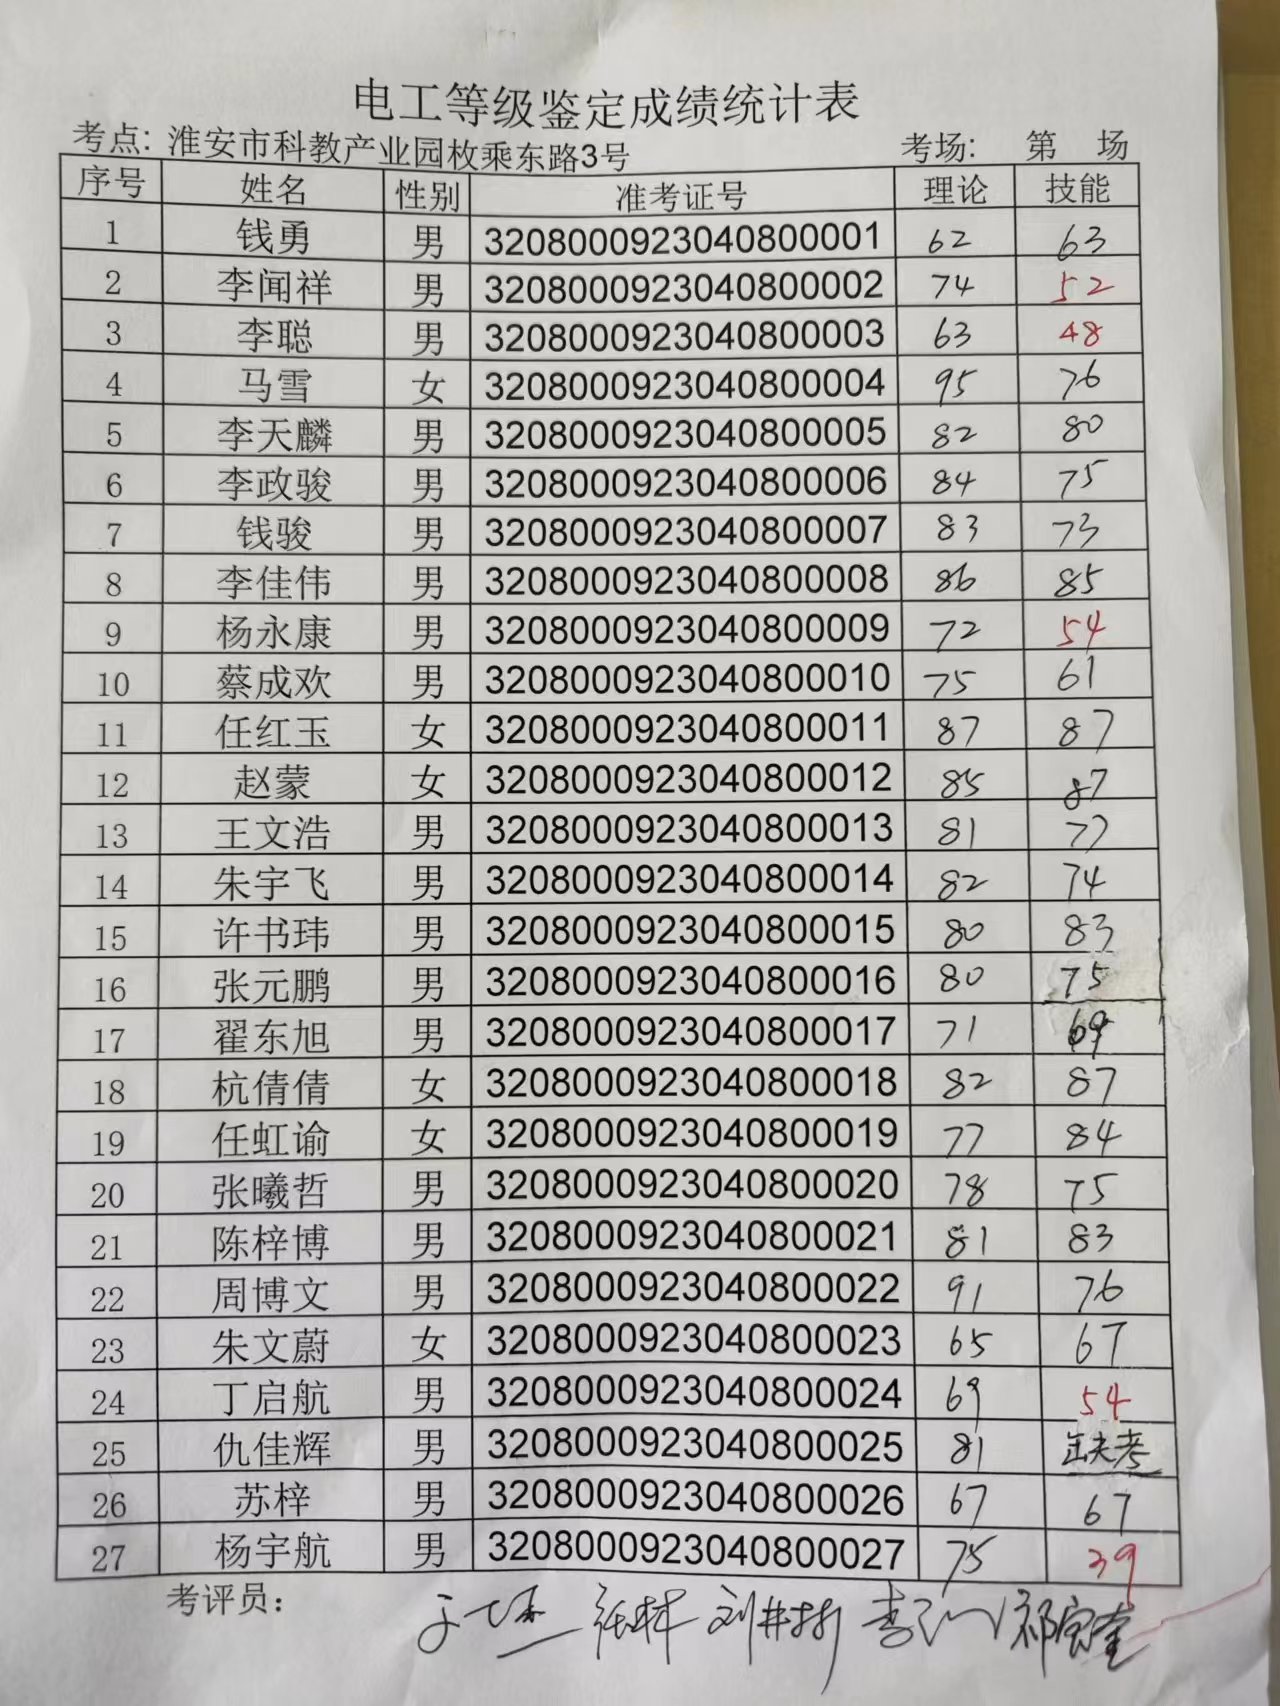 电工等级鉴定成绩统计表
考点: 淮安市科教产业园枚乘东路3号 考场: 第 场
序号 姓名 性别 准考证号 理论 技能
1 钱勇 男 3208000923040800001 62 63
2 李闻祥 男 3208000923040800002 74 52
3 李聪 男 3208000923040800003 63 48
4 马雪 女 3208000923040800004 95 76
5 李天麟 男 3208000923040800005 82 80
6 李政骏 男 3208000923040800006 84 75
7 钱骏 男 3208000923040800007 83 73
8 李佳伟 男 3208000923040800008 86 85
9 杨永康 男 3208000923040800009 72 54
10 蔡成欢 男 3208000923040800010 75 61
11 任红玉 女 3208000923040800011 87 87
12 赵蒙 女 3208000923040800012 85 87
13 王文浩 男 3208000923040800013 81 77
14 朱宇飞 男 3208000923040800014 82 74
15 许书玮 男 3208000923040800015 80 83
16 张元鹏 男 3208000923040800016 80 75
17 翟东旭 男 3208000923040800017 71 69
18 杭倩倩 女 3208000923040800018 82 87
19 任虹谕 女 3208000923040800019 77 84
20 张曦哲 男 3208000923040800020 78 75
21 陈梓博 男 3208000923040800021 81 83
22 周博文 男 3208000923040800022 91 76
23 朱文蔚 女 3208000923040800023 65 67
24 丁启航 男 3208000923040800024 69 54
25 仇佳辉 男 3208000923040800025 81 缺考
26 苏梓 男 3208000923040800026 67 67
27 杨宇航 男 3208000923040800027 75 39
考评员: